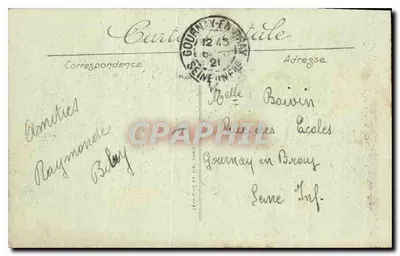 Carte Postale
Correspondance
Adresse
GOURNAY-EN-BRAY
12 45
21
SEINE INFRE
Amitiés
Raymonde
Melle Boivin
Rue des Ecoles
Gournay en Bray
Seine Inf.
CPAPHIL.COM